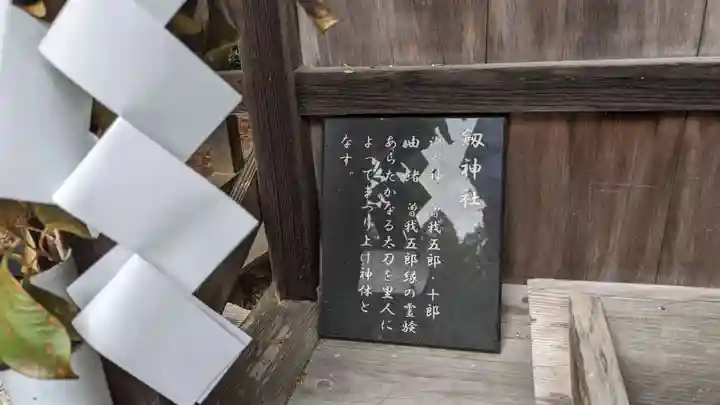 劔神社
曽我五郎・十郎
由緒 曽我五郎縁の霊験
あらたかなる太刀を里人に
よってまつり上げ神体と
なす。